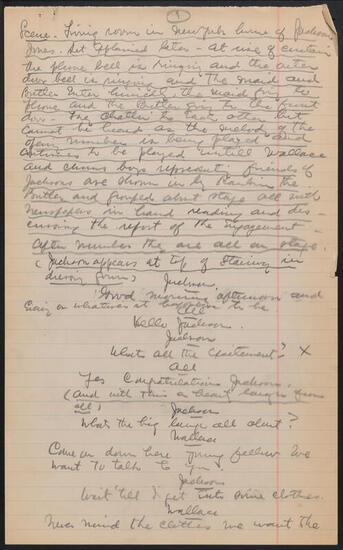 1
Scene. Living room in New York home of Jackson
Jones. Set explained later - at rise of curtain
the phone bell is ringing and the outer
door bell is ringing and the maid and
Butler Enter hurriedly the maid going to
phone and the Butler going to the front
door - The chatter to each other but
cannot be heard as the melody of the
opening number is being played and
continues to be played untill Wallace
and chorus boys represent friends of
Jacksons are shown in by the
Butler and grouped about stage all with
Newspapers in hand reading and dis-
cussing the report of the engagement -
after number the are all on stage.
(Jackson appears at top of stairway in
dressing gown)
Jackson.
Good morning afternoon and
Evening or whatever it happens to be
All
Hello Jackson.
Jackson
Whats all the Excitement? X
All
Yes Congratulations Jackson.
(And with this a hearty laugh from
all)
Jackson
Whats the big laugh all about?
Wallace
Come on down here young fellow we
want to talk to you
Jackson
Wait 'till I get into some clothes.
Wallace
Never mind the clothes we want the